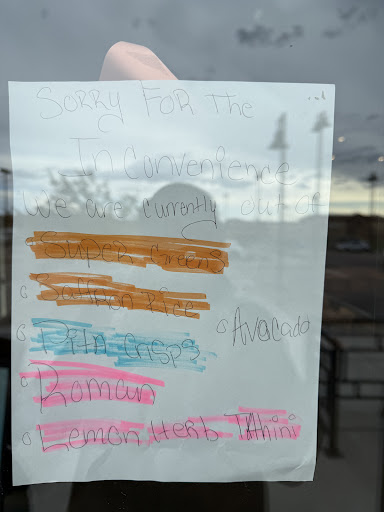 Sorry For The
Inconvenience
We are currently out of
Super Greens
Saffron Rice
Pita crisps
Avacado
Roman
Lemon Herb Tahini